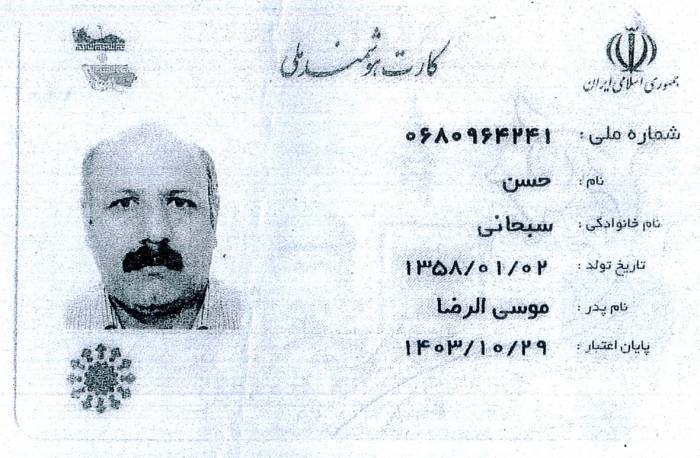 جمهوری اسلامی ایران
کارت هوشمند ملی
شماره ملی : ۰۶۸۰۹۶۴۲۴۱
نام : حسن
نام خانوادگی : سبحانی
تاریخ تولد : ۱۳۵۸/۰۱/۰۲
نام پدر : موسی الرضا
پایان اعتبار : ۱۴۰۳/۱۰/۲۹